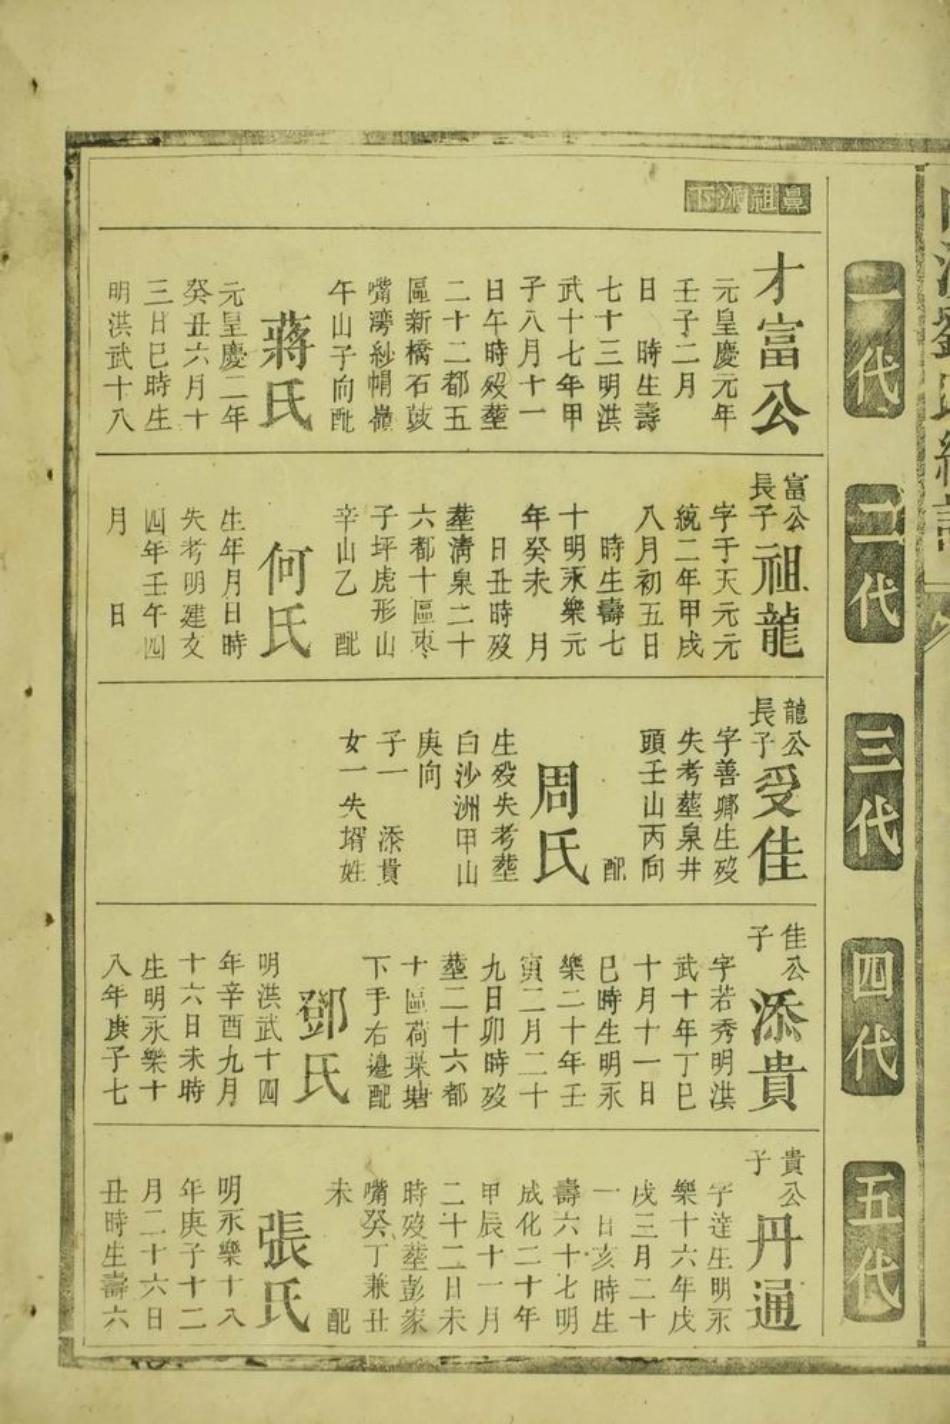 鼻祖派下
一代
才富公
元皇慶元年
壬子二月
日　時生壽
七十三明洪
武十七年甲
子八月十一
日午時歿塟
二十二都五
區新橋石鼓
嘴灣紗帽嶺
午山子向配
蔣氏
元皇慶二年
癸丑六月十
三日巳時生
明洪武十八
二代
富公
長子祖龍
字于天元元
統二年甲戌
八月初五日
時生壽七
十明永樂元
年癸未　月
日丑時歿
塟清泉二十
六都十區枣
子坪虎形山
辛山乙　配
何氏
生年月日時
失考明建文
四年壬午四
月　日
三代
龍公
長子受佳
字善卿生歿
失考塟泉井
頭壬山丙向
配
周氏
生歿失考塟
白沙洲甲山
庚向
子一　添貴
女一失壻姓
四代
佳公
子　添貴
字若秀明洪
武十年丁巳
十月十一日
巳時生明永
樂二十年壬
寅二月二十
九日卯時歿
塟二十六都
十區荷葉塘
下手右邉配
鄧氏
明洪武十四
年辛酉九月
十六日未時
生明永樂十
八年庚子七
五代
貴公
子　丹通
字達生明永
樂十六年戊
戌三月二十
一日亥時生
壽六十七明
成化二十年
甲辰十一月
二十二日未
時歿塟彭家
嘴癸丁兼丑
未　配
張氏
明永樂十八
年庚子十二
月二十六日
丑時生壽六